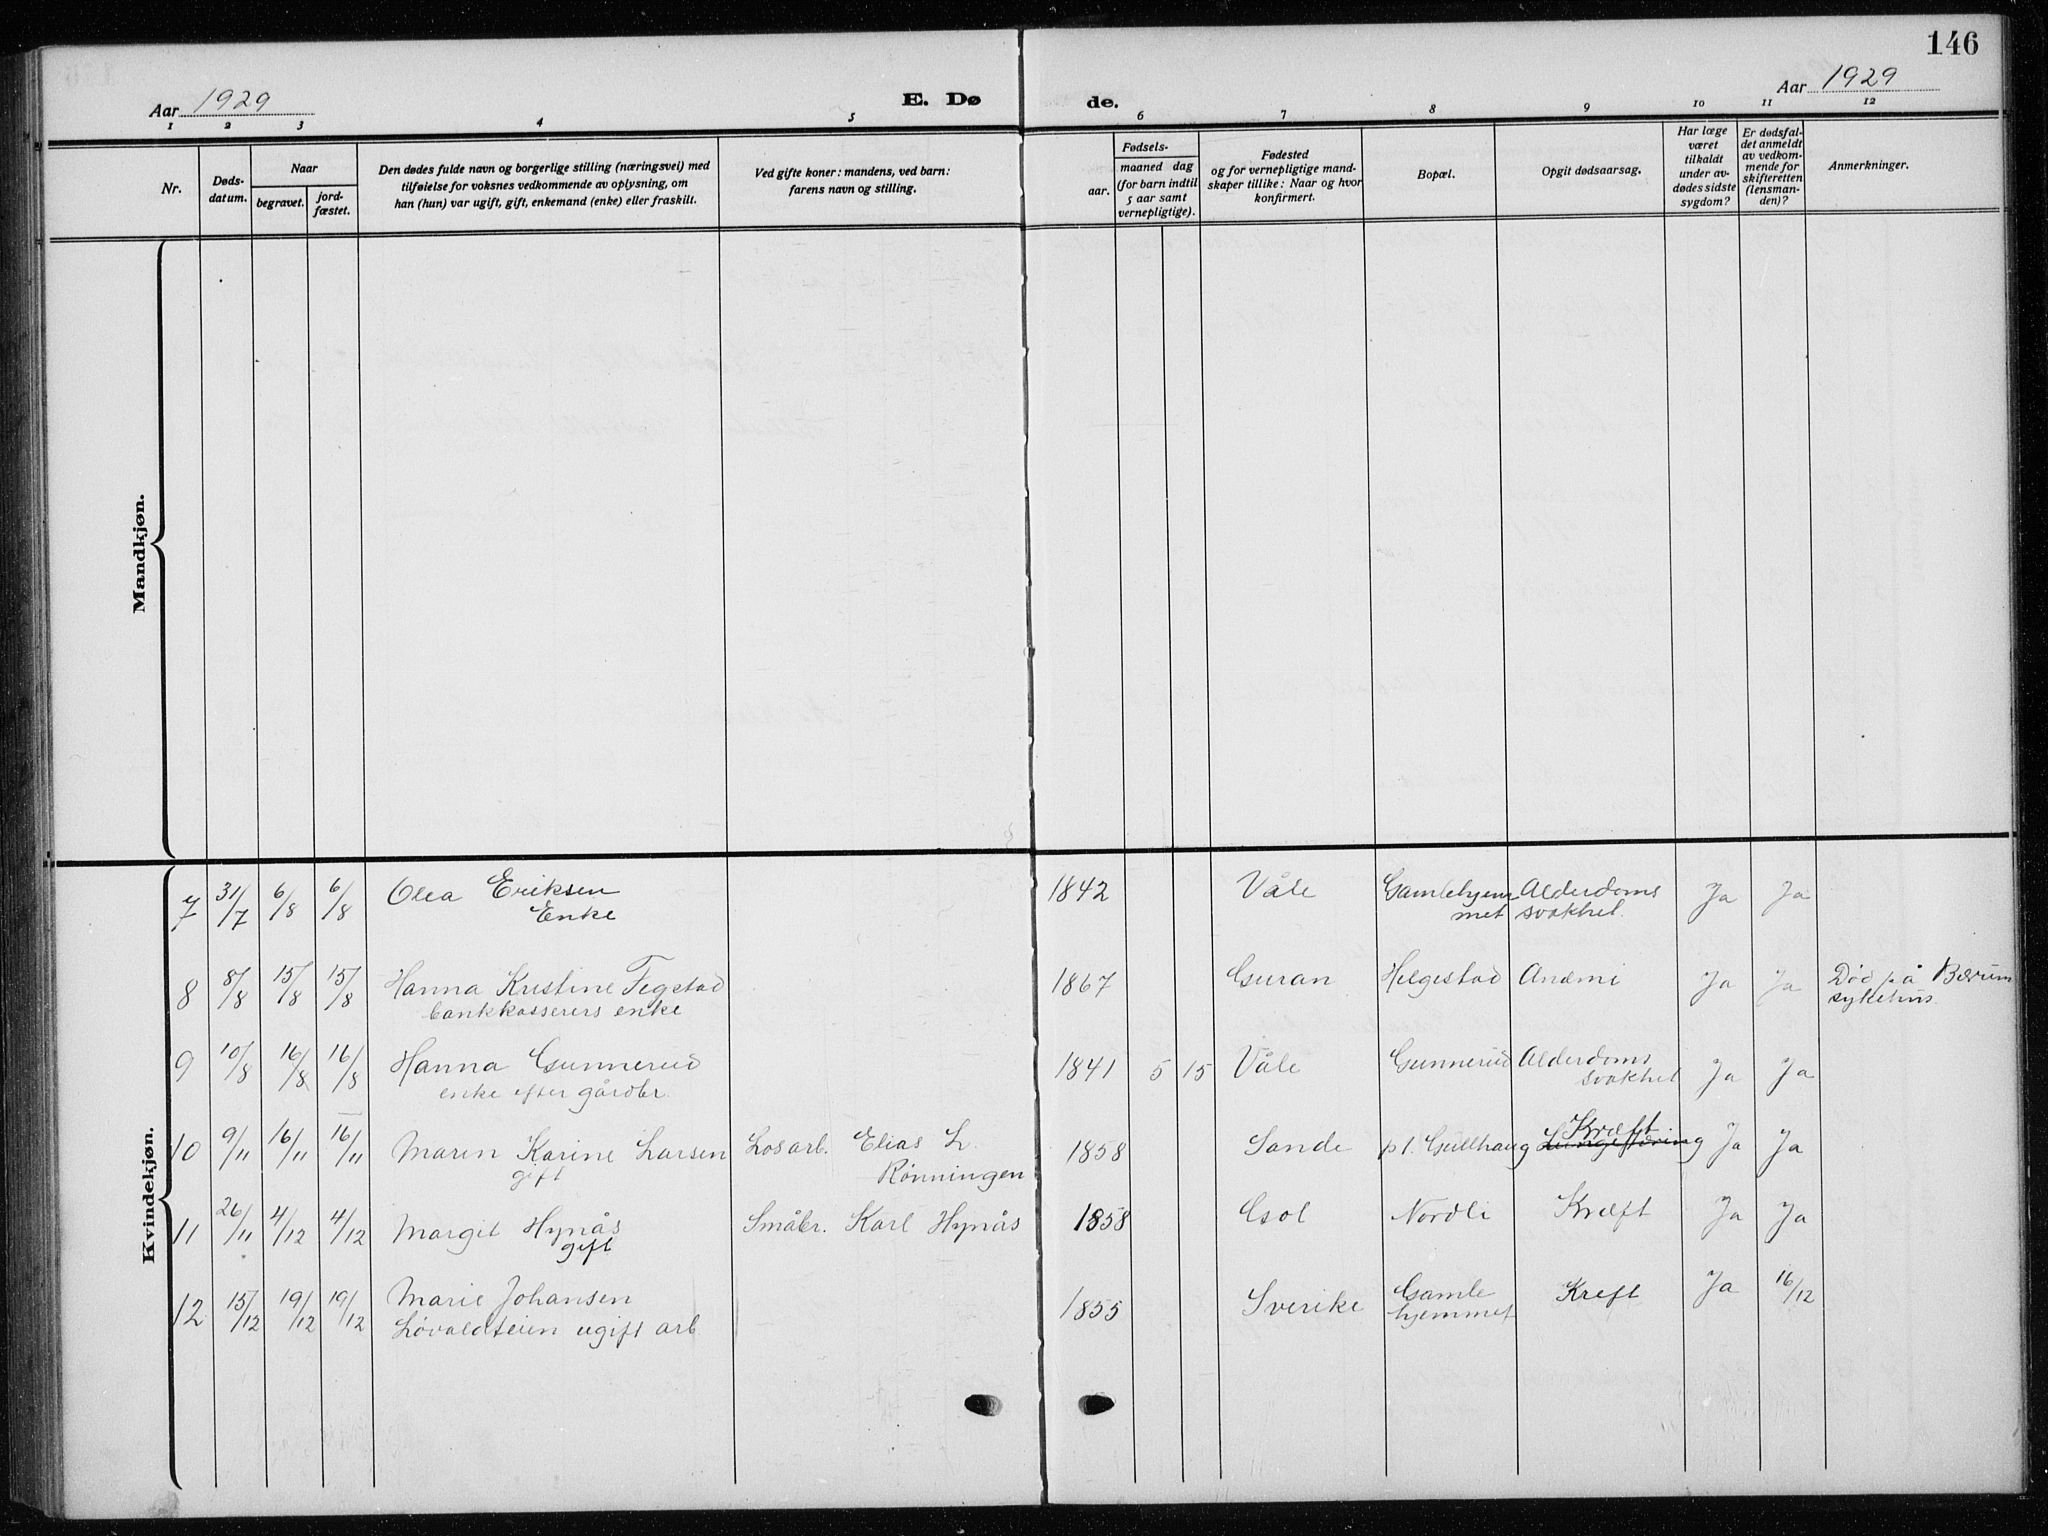 146
Aar 1929
E. Dø
de.
Aar 1929
1 2 3 4 5 6 7 8 9 10 11 12
Nr.
Døds-
datum.
Naar
begravet.
jord-
fæstet.
Den dødes fulde navn og borgerlige stilling (næringsvei) med
tilføielse for voksnes vedkommende av oplysning, om
han (hun) var ugift, gift, enkemand (enke) eller fraskilt.
Ved gifte koner: mandens, ved barn:
farens navn og stilling.
Fødsels-
aar.
maaned dag
(for barn indtil
5 aar samt
vernepligtige).
Fødested
og for vernepligtige mand-
skaper tillike: Naar og hvor
konfirmert.
Bopæl.
Opgit dødsaarsag.
Har læge
været
tilkaldt
under av-
dødes sidste
sygdom?
Er dødsfal-
det anmeldt
av vedkom-
mende for
skifteretten
(lensman-
den)?
Anmerkninger.
Mandkjøn.
Kvindekjøn.
7 31/7 6/8 6/8 Olea Eriksen 1842 Våle Gamlehjem Alderdoms Ja Ja
Enke met svakhet.
8 8/8 15/8 15/8 Hanna Kristine Tegstad 1867 Helgestad Anæmi Ja Ja Død på Bærum
bankkasserers enke sykehus.
9 10/8 16/8 16/8 Hanna Gunnerud 1841 5 15 Våle Gunnerud Alderdoms Ja Ja
enke efter gårdbr. svakhet
10 9/11 16/11 16/11 Maren Karine Larsen Losarb. Elias L. 1858 Sande p.t. Gullhaug Kræft Ja Ja
gift Rønningen
11 26/11 4/12 4/12 Margit Hynås Småbr. Karl Hynås 1858 Gol Nordli Kræft Ja Ja
gift
12 15/12 19/12 19/12 Marie Johansen 1855 Sverike Gamle Kreft Ja 16/12
Løvaldteien ugift arb hjemmet